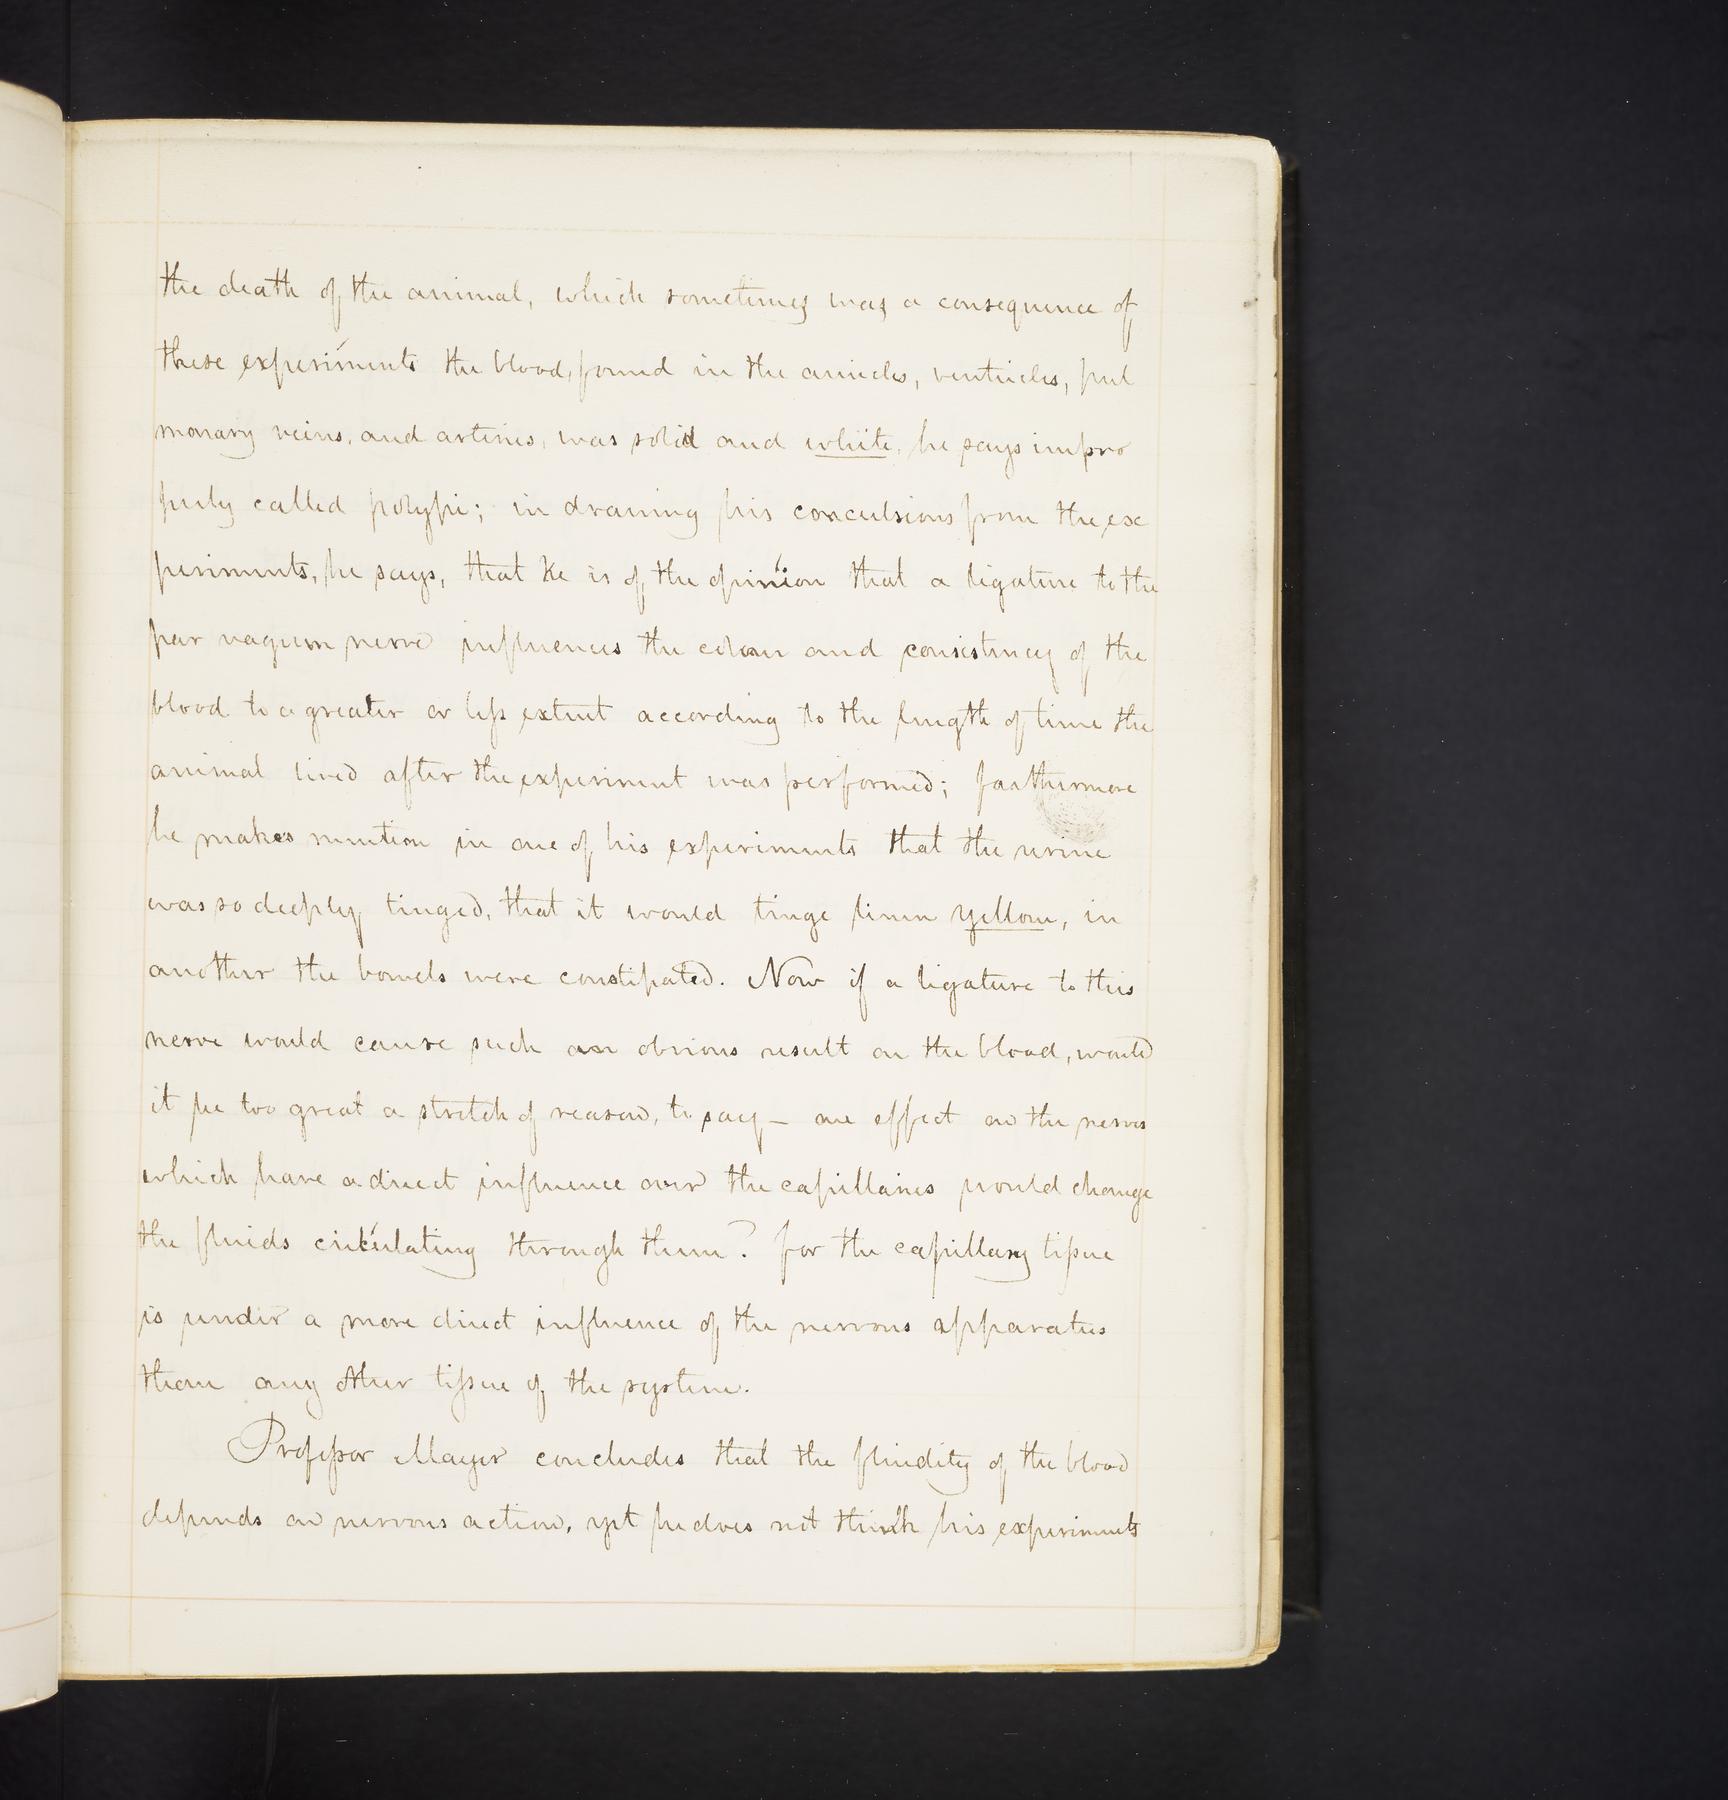 the death of the animal, which sometimes was a consequence of
these experiments the blood, found in the auricles, ventricles, pul
monary veins, and arteries, was solid and white, he says impro
perly called polypi; in drawing his conculsions from the ex
periments, he says, that he is of the opinion that a ligature to the
par vagum nerve influences the colour and consistency of the
blood to a greater or less extent according to the length of time the
animal lived after the experiment was performed; farthermore
he makes mention in one of his experiments that the urine
was so deeply tinged, that it would tinge linen yellow, in
another the bowels were constipated. Now if a ligature to this
nerve would cause such an obvious result on the blood, would
it be too great a stretch of reason, to say — an effect on the nerves
which have a direct influence over the capillaries would change
the fluids circulating through them? for the capillary tissue
is under a more direct influence of the nervous apparatus
than any other tissue of the system.
Professor Mayer concludes that the fluidity of the blood
depends on nervous action, yet he does not think his experiments